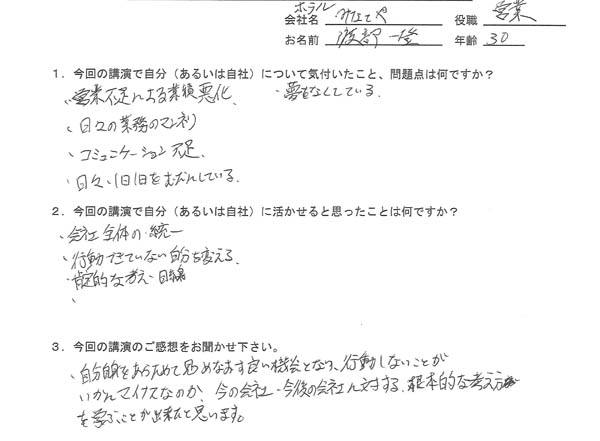 ホテル
会社名 みなとや 役職 営業
お名前 渡部 一隆 年齢 30
1．今回の講演で自分（あるいは自社）について気付いたこと、問題点は何ですか？
・営業不足による業績悪化、 ・夢をなくしている。
・日々の業務のマンネリ
・コミュニケーション不足、
・日々、1日1日をむだにしている。
2．今回の講演で自分（あるいは自社）に活かせると思ったことは何ですか？
・会社全体の統一
・行動できていない自分を変える。
・肯定的な考え・目線
、
3．今回の講演のご感想をお聞かせ下さい。
・自分自身をあらためて見つめなおす良い機会となり、行動しないことが
いかにマイナスなのか、今の会社、今後の会社に対する、根本的な考え方
を学ぶことが出来たと思います。